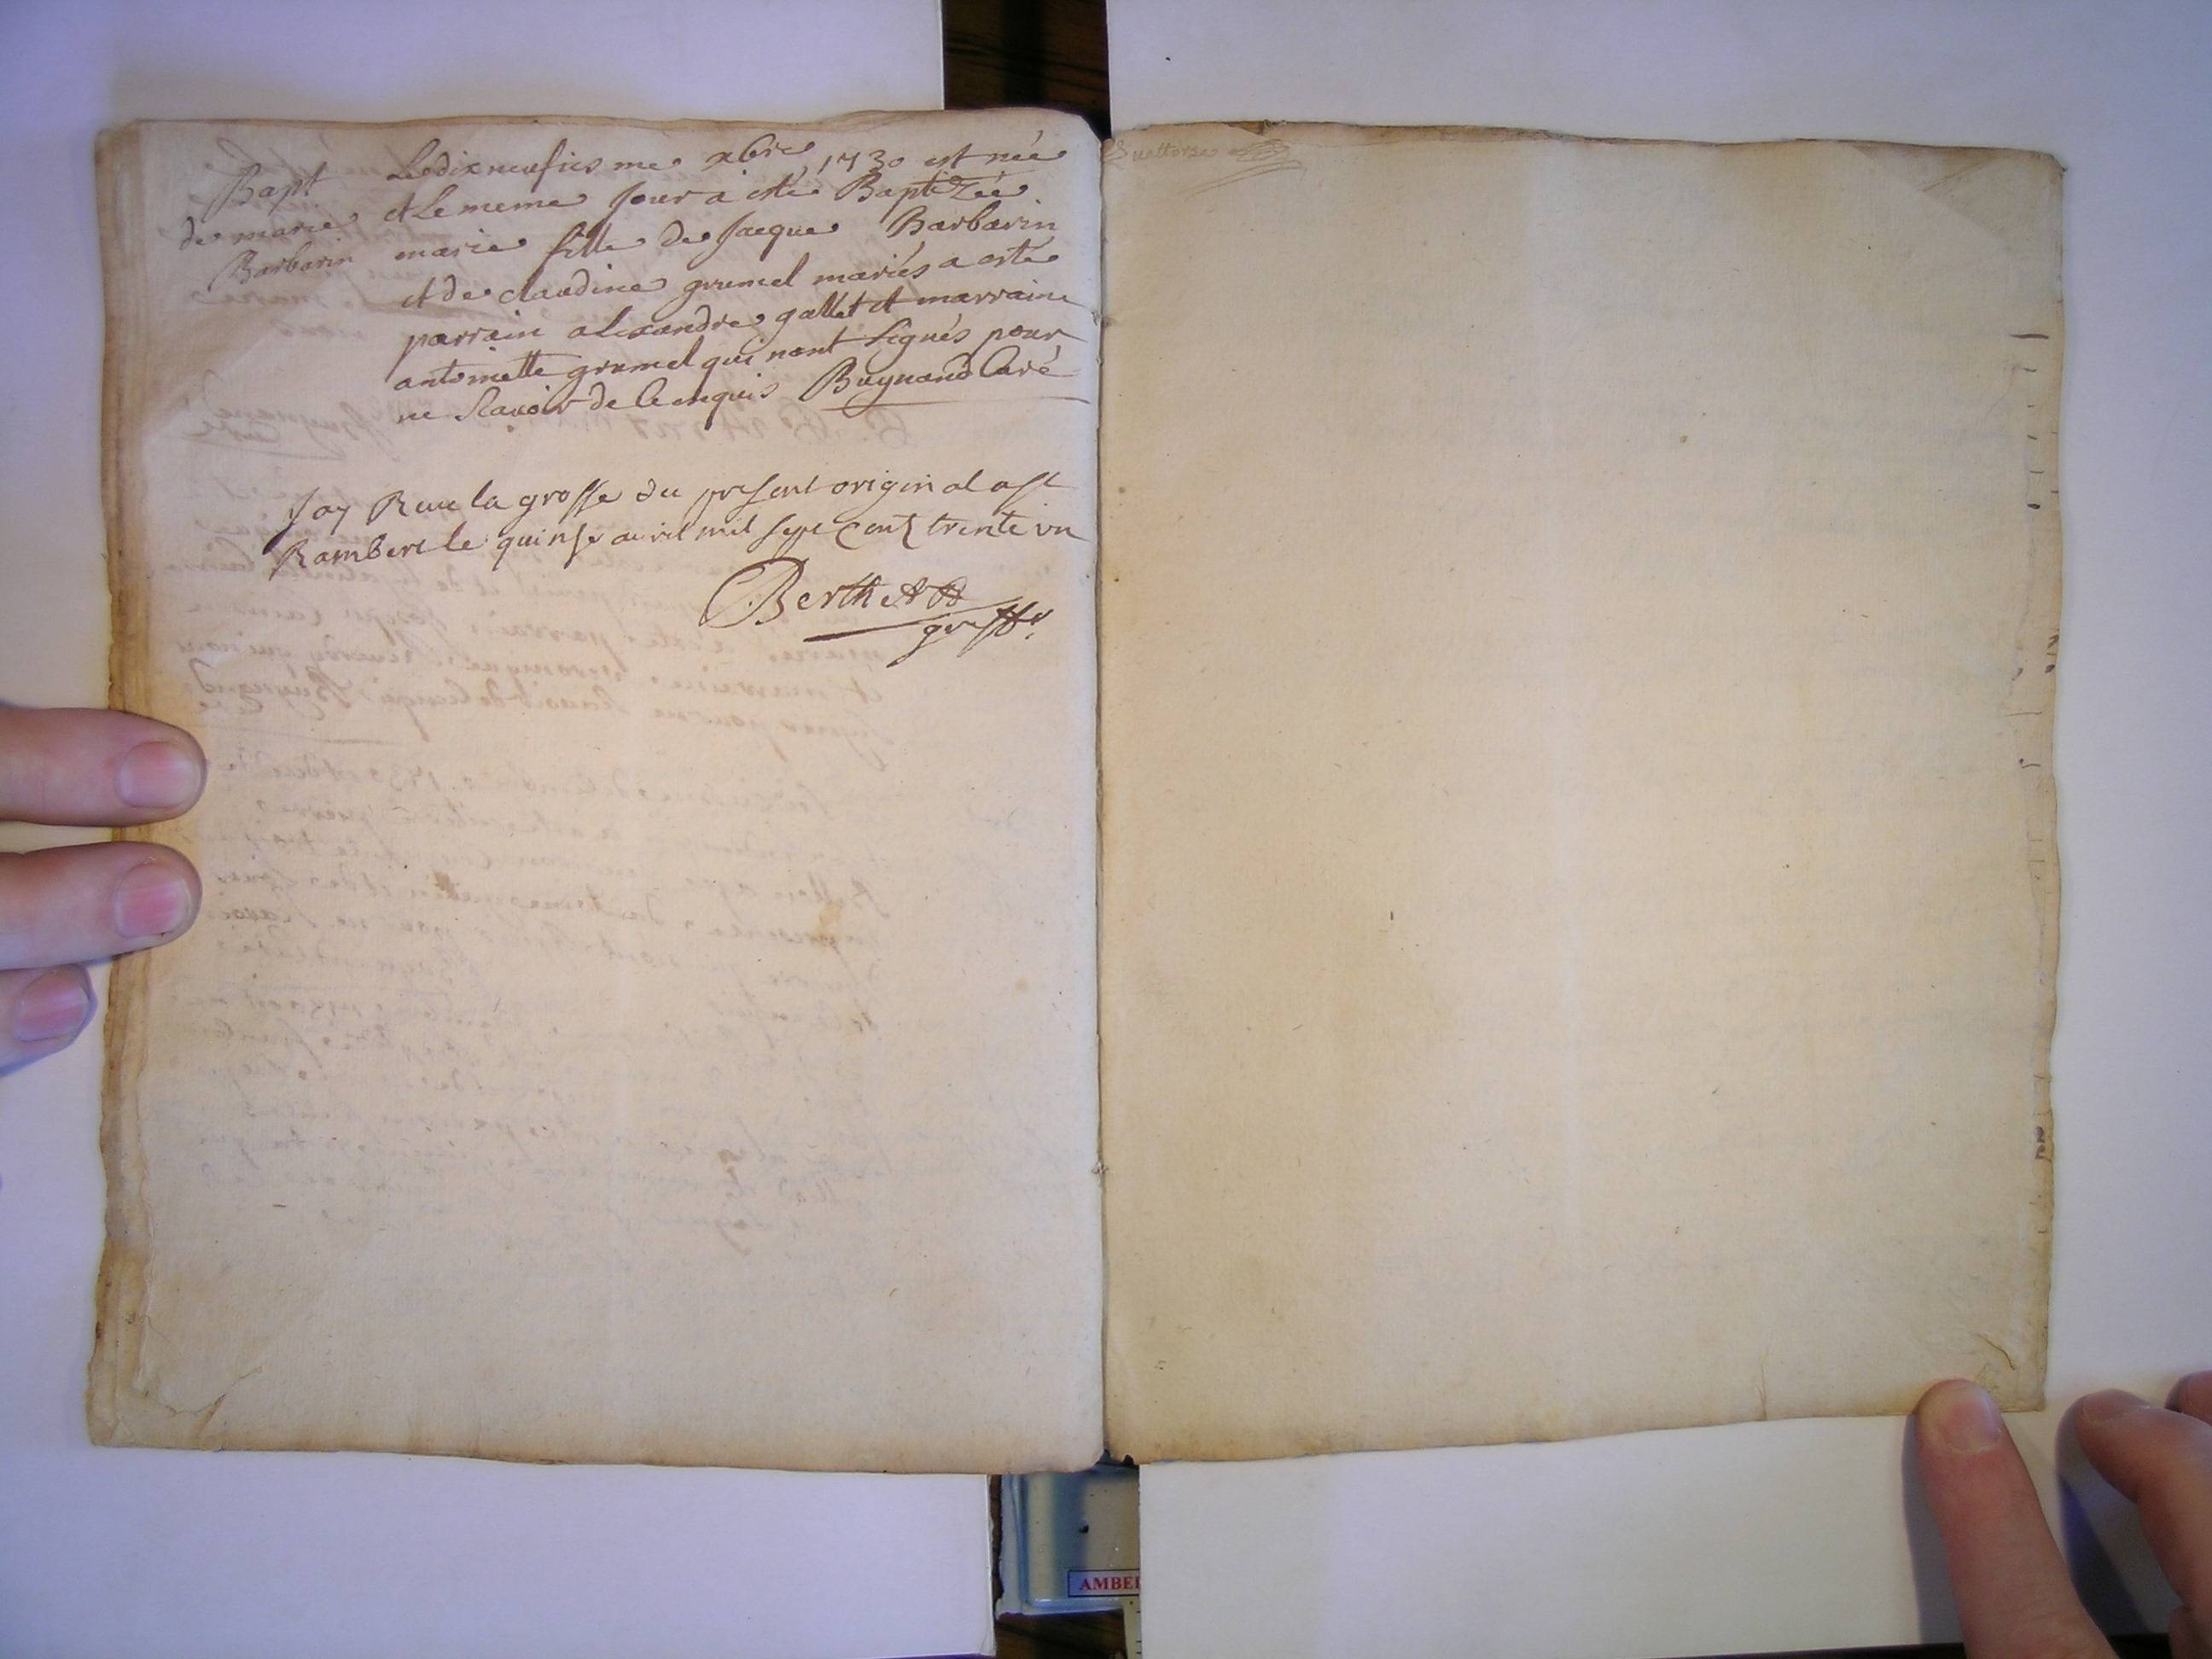 Bapt
de marie
Barbarin
Ledixneufiesme xbre 1730 est née
et Le meme Jour a esté Baptizée
marie fille de Jacque Barbarin
et de claudine grumel mariés a esté
parrain alexandre gallet et marraine
antoinette grumel qui nont signés pour
ne scavoir de ce enquis Buynand Curé
Jay Receu la grosse du present original a st
Rambert le quinse avril mil sept cent trente un
Berthet
greffr
quattorse
AMBER